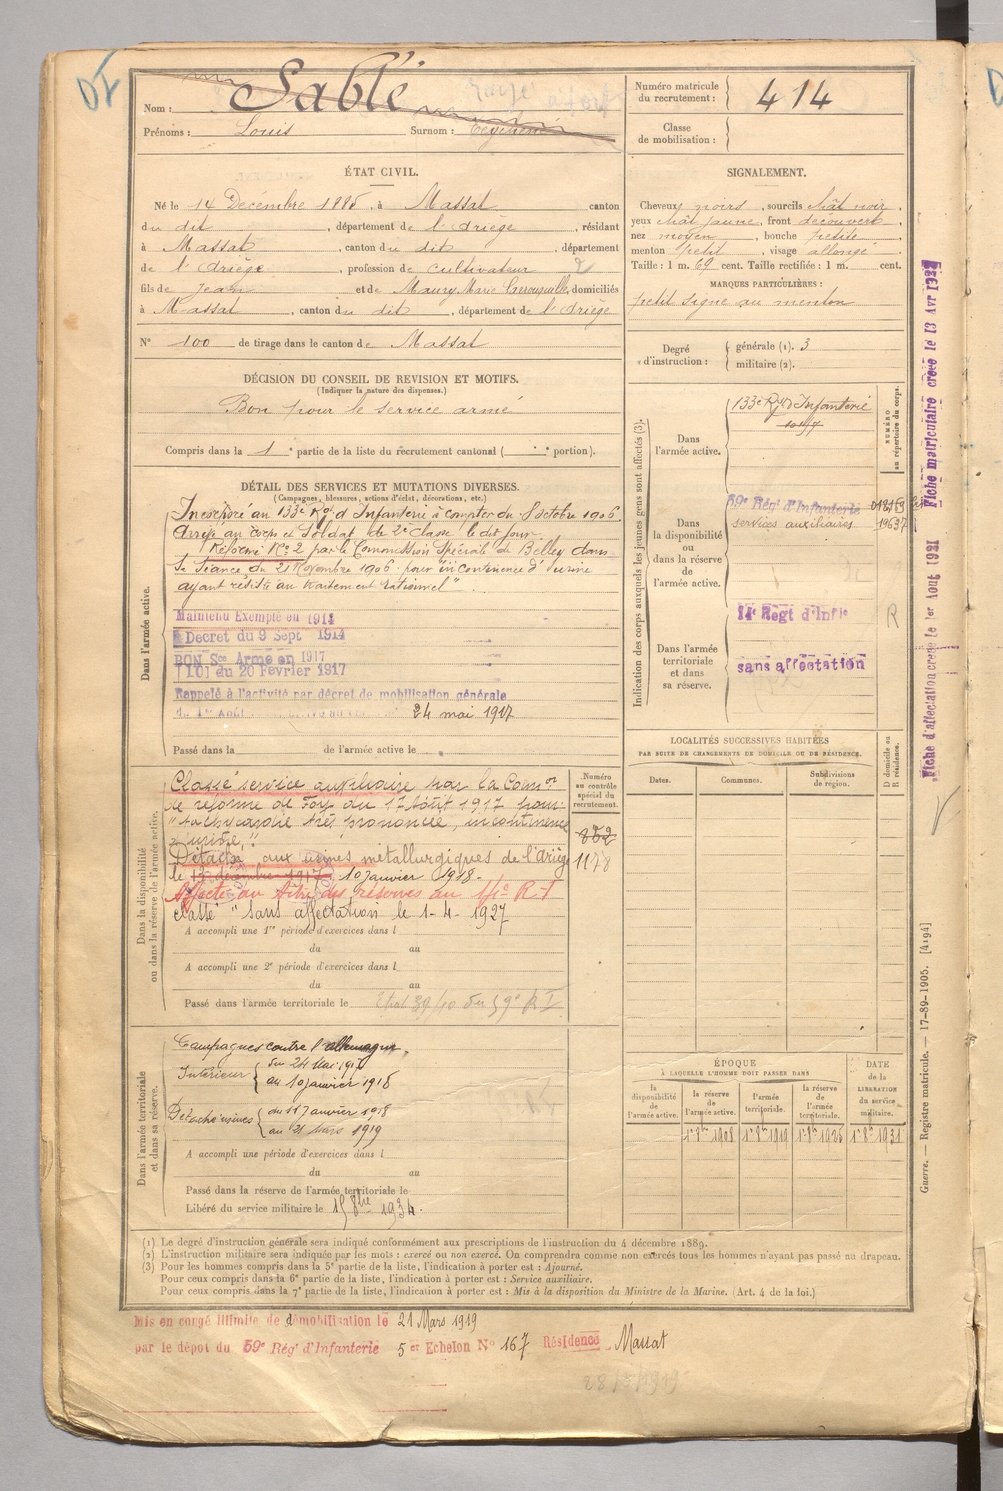 Nom : Sablé
Prénoms : Louis Surnom :
Numéro matricule du recrutement : 414
Classe de mobilisation :
ÉTAT CIVIL.
Né le 14 Décembre 1885, à Massat canton
du dit, département de l'Ariège, résidant
à Massat, canton du dit, département
de l'Ariège, profession de cultivateur
fils de Jean et de Maury Marie, domiciliés
à Massat, canton du dit, département de l'Ariège
N° 100 de tirage dans le canton de Massat
DÉCISION DU CONSEIL DE REVISION ET MOTIFS.
(Indiquer la nature des dispenses.)
Bon pour le service armé
Compris dans la 1e partie de la liste du recrutement cantonal ( e portion).
SIGNALEMENT.
Cheveux noirs, sourcils chât noir,
yeux chât jaune, front découvert,
nez moyen, bouche petite,
menton petit, visage allongé
Taille : 1 m. 69 cent. Taille rectifiée : 1 m. cent.
MARQUES PARTICULIÈRES :
petit signe au menton
Degré d'instruction : générale (1). 3
militaire (2).
DÉTAIL DES SERVICES ET MUTATIONS DIVERSES.
(Campagnes, blessures, actions d'éclat, décorations, etc.)
Dans l'armée active.
Incorporé au 133e Rgt d'Infanterie à compter du 8 octobre 1906
Arrivé au corps et Soldat de 2e classe le dit jour.
Réformé No 2 par la Commission Spéciale de Belley dans
sa séance du 21 Novembre 1906 pour "incontinence d'urine
ayant résisté au traitement rationnel".
Maintenu Exempté en 1914
Décret du 9 Sept 1914
BON Sce Armé en 1917
LOI du 20 Février 1917
Rappelé à l'activité par décret de mobilisation générale
du 1er Août 24 mai 1917
Passé dans la de l'armée active le
Indication des corps auxquels les jeunes gens sont affectés (3).
NUMÉRO au répertoire du corps.
Dans l'armée active.
133e Rgt d'Infanterie
Dans la disponibilité ou dans la réserve de l'armée active.
59e Rég' d'Infanterie
services auxiliaires
Dans l'armée territoriale et dans sa réserve.
14e Regt d'Infie
R
sans affectation
Dans la disponibilité ou dans la réserve de l'armée active.
Numéro au contrôle spécial du recrutement.
Classé service auxiliaire par la Comon
de réforme de Foix du 17 Août 1917 pour
"tachycardie très prononcée, incontinence
d'urine".
Détaché aux usines métallurgiques de l'Ariège
le 13 décembre 1917. 10 janvier 1918.
Affecté au titre des réserves au 14e R.I
classé "sans affectation le 1-4-1927
852
1178
A accompli une 1re période d'exercices dans l
du au
A accompli une 2e période d'exercices dans l
du au
Passé dans l'armée territoriale le
LOCALITÉS SUCCESSIVES HABITÉES
PAR SUITE DE CHANGEMENTS DE DOMICILE OU DE RÉSIDENCE.
Dates. Communes. Subdivisions de region. D domicile ou R résidence.
Dans l'armée territoriale et dans sa réserve.
Campagnes contre l'allemagne.
Intérieur du 24 Mai 1917
au 10 janvier 1918
Détaché usines du 11 Janvier 1918
au 21 Mars 1919
A accompli une période d'exercices dans l
du au
Passé dans la réserve de l'armée territoriale le
Libéré du service militaire le 15 8bre 1934.
ÉPOQUE
À LAQUELLE L'HOMME DOIT PASSER DANS
DATE de la LIBÉRATION du service militaire.
la disponibilité de l'armée active. la réserve de l'armée active. l'armée territoriale. la réserve de l'armée territoriale.
1er 8bre 1908 1er 8bre 1919 1er 8bre 1925 1er 8bre 1931
(1) Le degré d'instruction générale sera indiqué conformément aux prescriptions de l'instruction du 4 décembre 1889.
(2) L'instruction militaire sera indiquée par les mots : exercé ou non exercé. On comprendra comme non exercés tous les hommes n'ayant pas passé au drapeau.
(3) Pour les hommes compris dans la 5e partie de la liste, l'indication à porter est : Ajourné.
Pour ceux compris dans la 6e partie de la liste, l'indication à porter est : Service auxiliaire.
Pour ceux compris dans la 7e partie de la liste, l'indication à porter est : Mis à la disposition du Ministre de la Marine. (Art. 4 de la loi.)
Mis en congé illimité de démobilisation le 21 Mars 1919
par le dépot du 59e Rég' d'Infanterie 5e Echelon N° 167 Résidence Massat
28/3/1919
Fiche d'affectation créée le 1er Aout 1921
Fiche matriculaire créée le 13 Avr
Guerre. — Registre matricule. — 17-89-1905. [4194]